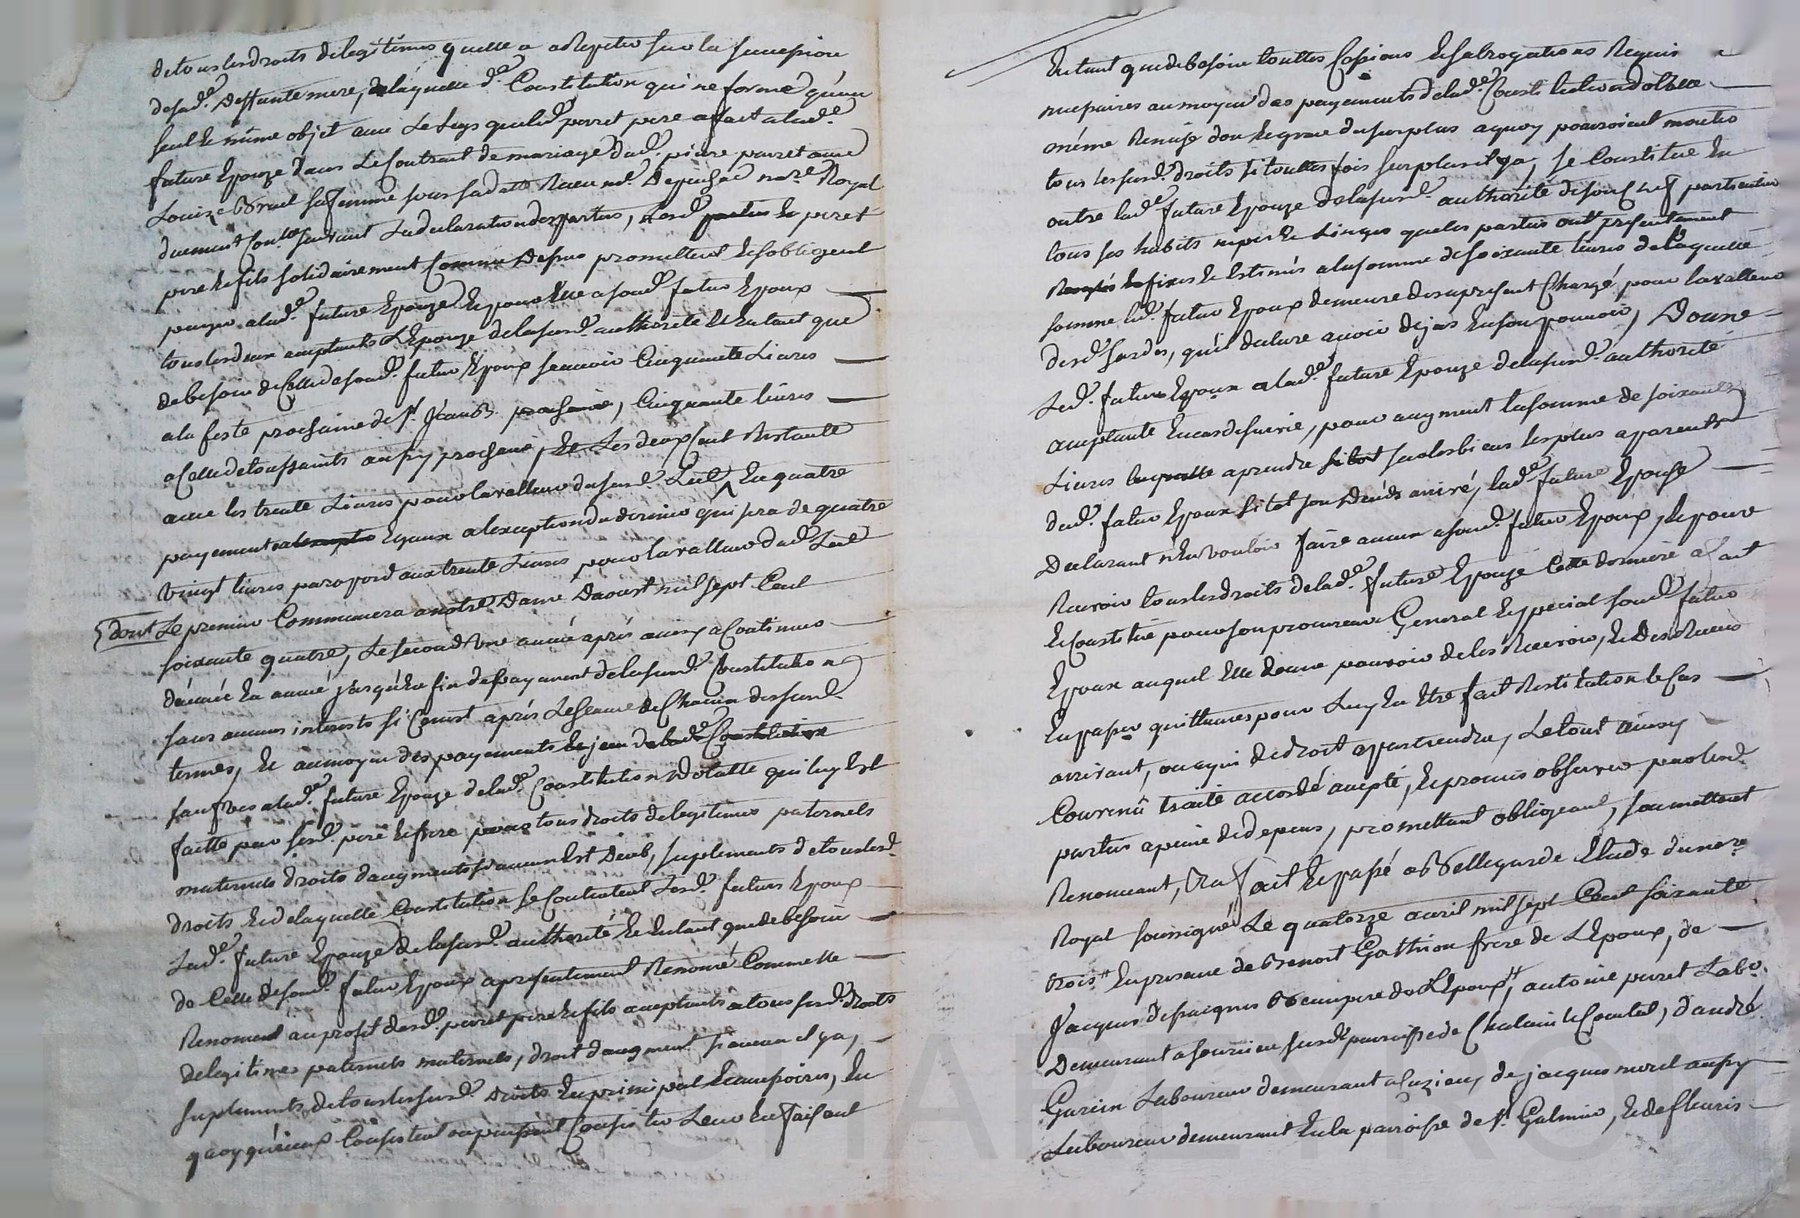 de tous les droits de legitimes quelle a a Repeter sur la succession
de sad.e deffunte mere, de laquelle d.e Constitution qui ne forme qu'un
seul et même objet avec Le Legs que led. perret pere a fait a lad.e
future Epouze dans Le Contract de mariage dud. pierre perret avec
Louize sa femme sous sa datte Receu me. no.re Royal
duement suivant La declaration des parties, Lesd. perret
pere et fils solidairement Comme Dessus promettent et s'obligent
payer a lad. future Epouze et pour Elle a sond. futur Epoux
tous les deux acceptants L'Epouze de lasusd. authorité et Entant que
de besoin de Celle de sond. futur Epoux sçavoir Cinquante Livres
a la feste prochaine de St. Jean B. prochaine, Cinquante livres
a Celle de toussaints aussy prochaine, et Les deux Cent Restante
avec les trente Livres pour la valleur du susd. En quatre
payements Egaux a lexception du dernier qui sera de quatre
vingt livres par raport aux trente Livres pour la valleur dud.
dont Le premier Commencera a notre Dame Daoust mil sept Cent
soixante quatre, Le second une année après ainsy a Continuer
d'année En année jusqu'En fin de payement de lasusd. Constitution
sans aucuns interests si Ce n'est après Lescheance de Chacun des susd.
termes, Et au moyen des payements de lad.e Constitution
a lad.e future Epouze de lad.e Constitution dotalle qui luy Est
faitte par sesd. pere et frere pour tous droits de legitimes paternels
maternels droits d'augments si aucun Est Deub, suplements de tous lesd.
droits Et de laquelle Constitution se Contentent Lesd. futurs Epoux
Lad.e future Epouze de lasusd. authorité Et Entant que de besoin
de Celle de sond. futur Epoux a presentement Renoncé Comme Elle
Renonce au profit desd. perret pere et fils acceptants a tous susd. droits
de legitimes paternels maternels, droit d'augment si aucun il y a,
suplements de tous les susd. Droits En principal Et accessoires, En
quoy qu'ieux Consistent ou puissent Consister Leur En faisant
Entant que de besoin touttes Cessions Et subrogations Requises
necessaires au moyen des payements de lad. Const.
même Remise don Et grace du surplus a quoy pourroient monter
tous les susd. droits si touttes fois surplus il y a, se Constitue En
outre lad.e future Epouze de lasusd. authorité de son Chef particulier
tous ses habits nipes Et Linges que les parties ont presentement
fixés Et Estimés a la somme de soixante livres de laquelle
somme led. futur Epoux demeure des a present Chargé, pour la valleur
desd. hardes, qu'il declare avoir dejas En son pouvoir, Donne
Led. futur Epoux a lad.e future Epouze de lasusd. authorité
acceptante En cas de survie, pour augment la somme de soixante
Livres a prendre sur les biens les plus apparents
dud. futur Epoux sitot son Decéds arrivé, lad.e future Epouse
Declarant n'En vouloir faire aucun a sond. futur Epoux, Et pour
Recevoir tous les droits de lad.e future Epouze Cette derniere a fait
Et Constitué pour son procureur General Et special sond. futur
Epoux auquel Elle donne pouvoir de les Recevoir, Et des Receus
En passer quittances pour Luy En Etre fait Restitution le Cas
arrivant, ou a qui de droit appartiendra, Le tout ainsy
Convenu traité accordé accepté, Et promis observer par lesd.
parties a peine de depens, promettant obligeant, soumettant
Renonceant, &a fait Et passé a Bellegarde Etude du no.re
Royal soussigné Le quatorze avril mil sept Cent soixante
trois En presence de Benoit Gathion frere de L'Epoux, de
Jacques beaupere de L'Epoux, antoine perret Labo.
Demeurant a susd. parroisse de Chalain le Comtal, d'andré
Guerin Laboureur demeurant a Cuzieu, de jacques morel aussy
Laboureur demeurant En la parroisse de St. Galmier, Et de fleuris
CHARLEYRON